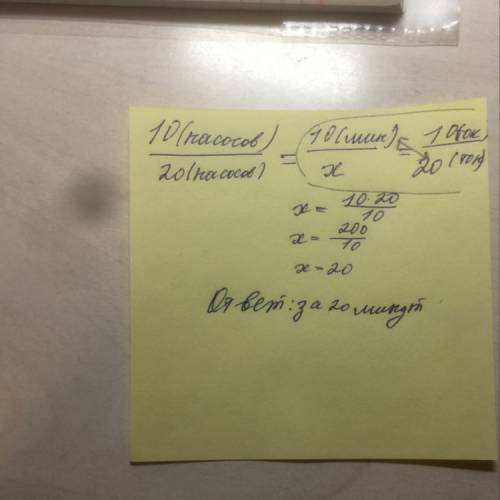 10(насосов) / 20(насосов) = 10(мин) / x = 10 / 20
x = 10·20 / 10
x = 200 / 10
x = 20
Ответ: за 20 минут